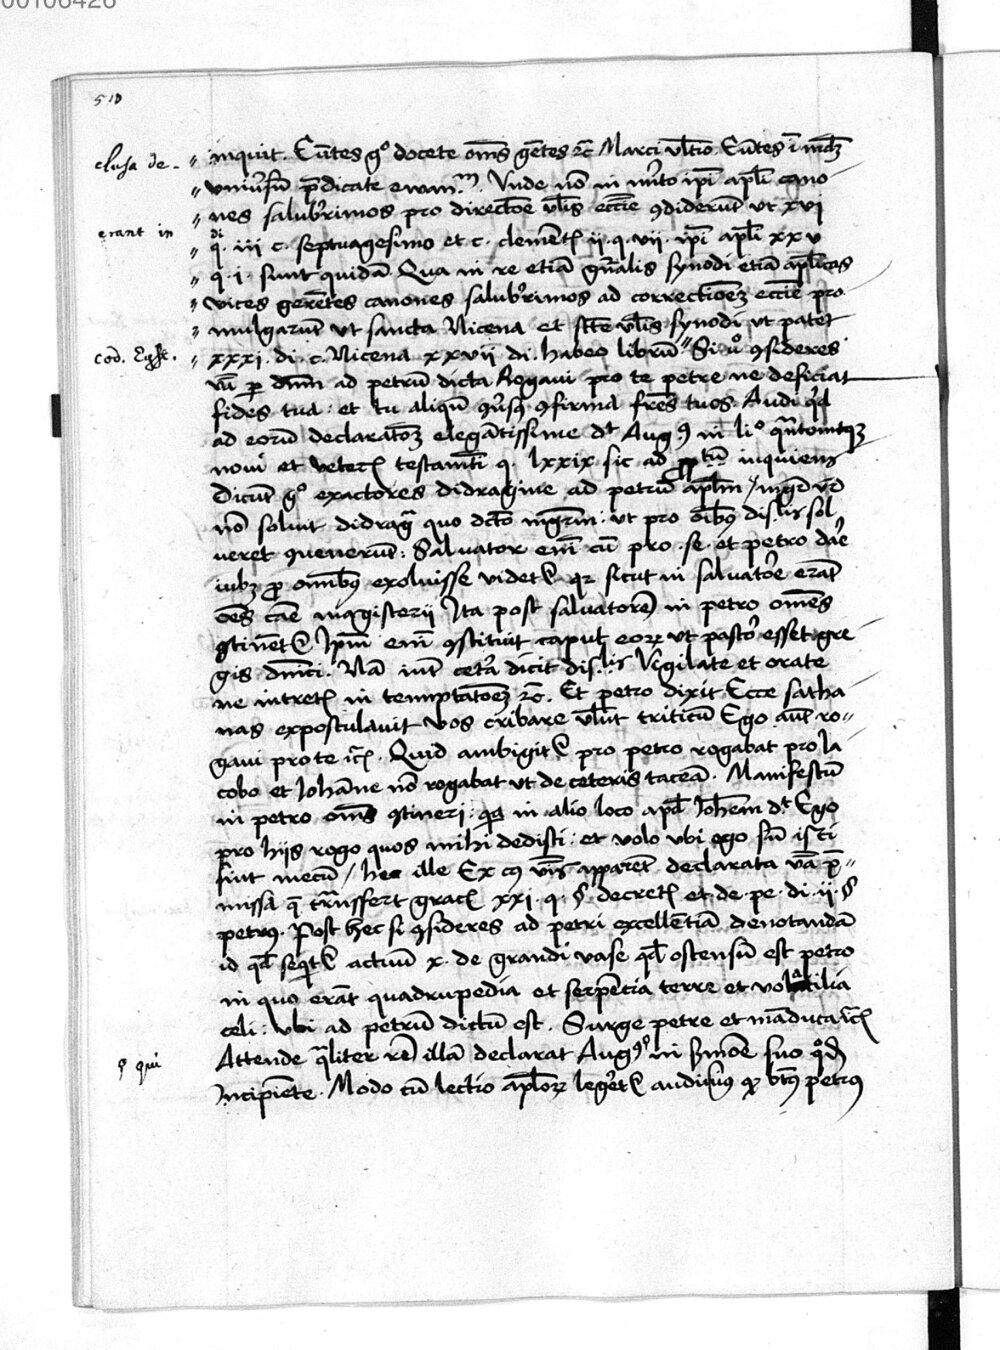 00106426
510
clusa de-
inquit. Eūtes gº docete om̄s gētes ⁊c̄ Marci vltīo Eūtes ī mūdū
vniūsū p̄dicate ewanm. Vnde nō in mīto ip̄i apl̄i cano
nes salub̄rimos pro directōe vl̄is ecc̄ie ꝯdiderūt ut xvi
erant in
di
q. iii c. septuagesimo et c. clemētꝭ ii. q. vii. ip̄i apl̄i xxv
q. i. sunt quidā. Qua in re etiā gn̄alis synodi etiā apl̄icas
vices gerētes canones salub̄rimos ad correctiōeꝫ ecc̄ie pro
mulgarūt ut sancta Nicena et sc̄te vl̄is synodi ut patet
cod. Eyst.
xxxi. di. c. Nicena xxvii di. habeo librū Si v̊ ꝯsideres
vā per dn̄m ad petrū dicta Rogavi pro te petre ne deficiat
fides tua: et tu aliqn̄ ꝯv̄sꝰ ꝯfirma fr̄es tuos Audi qd̄
ad eorū declaratōeꝫ elegātissime dt̄ Augꝰ in liº
novi et veterꝭ testam̄ti q. lxxix sic ad inquiens
Dicūt gº exactores didragme ad petrū apl̄m mgr̄ vr̄
nō solvit didragᷓ quo dc̄to mgr̄m: ut pro oībꝰ discl̄is sol
veret ꝯvenerūt: Salvator em̄ cū pro se et petro dar̄e
iubꝫ pro om̄ibꝰ exolvisse videtꝭ qr̄ sicut in salvatōe erāt
oēs cāe magisterii Ita post salvatorē in petro om̄es
ꝯtinētꝭ Ip̄m em̄ ꝯstituit caput eoꝝ ut pastor esset gre
gis dn̄ici. Nā int̄ cet̄a dicit discl̄is Vigilate et orate
ne intretꝭ in temptatōeꝫ ⁊c̄. Et petro dixit Ecce satha
nas expostulavit vos cribare vl̄ut triticū Ego aūt ro
gavi pro te ⁊cꝭ. Quid ambigitꝭ pro petro rogabat pro Ia
cobo et Johāne nō rogabat ut de ceteris taceā. Manifestū
in petro om̄s ꝯtineri: qꝫ in alio loco apd̄ Joh̄em dt̄ Ego
pro hiis rogo quos mihi dedisti: et volo ubi ego sū isti
sint mecū / hec ille Ex cꝰ v̄bis apparet declarata vā p̄
missa q̄ trāsfert gracꝭ xxi. q. § decretꝭ et de pe. di. ii. §
petrꝰ. Post hec si ꝯsideres ad petri excellētiā denotandā
id qd̄ seqͥtꝭ actuū x. de grandi vase qd̄ ostensū est petro
in quo erāt quadrupedia et serpēcia terre et volatilia
celi: ubi ad petrū dictū est. Surge petre et māduca ⁊cꝭ
Attende qᷓliter rē illā declarat Augꝰ in s̄mōe suo
§ qui
Incipiēte. Modo cū lectio apl̄oꝝ leger̄etꝭ audivimꝰ qr̄ bt̄ꝰ petrꝰ